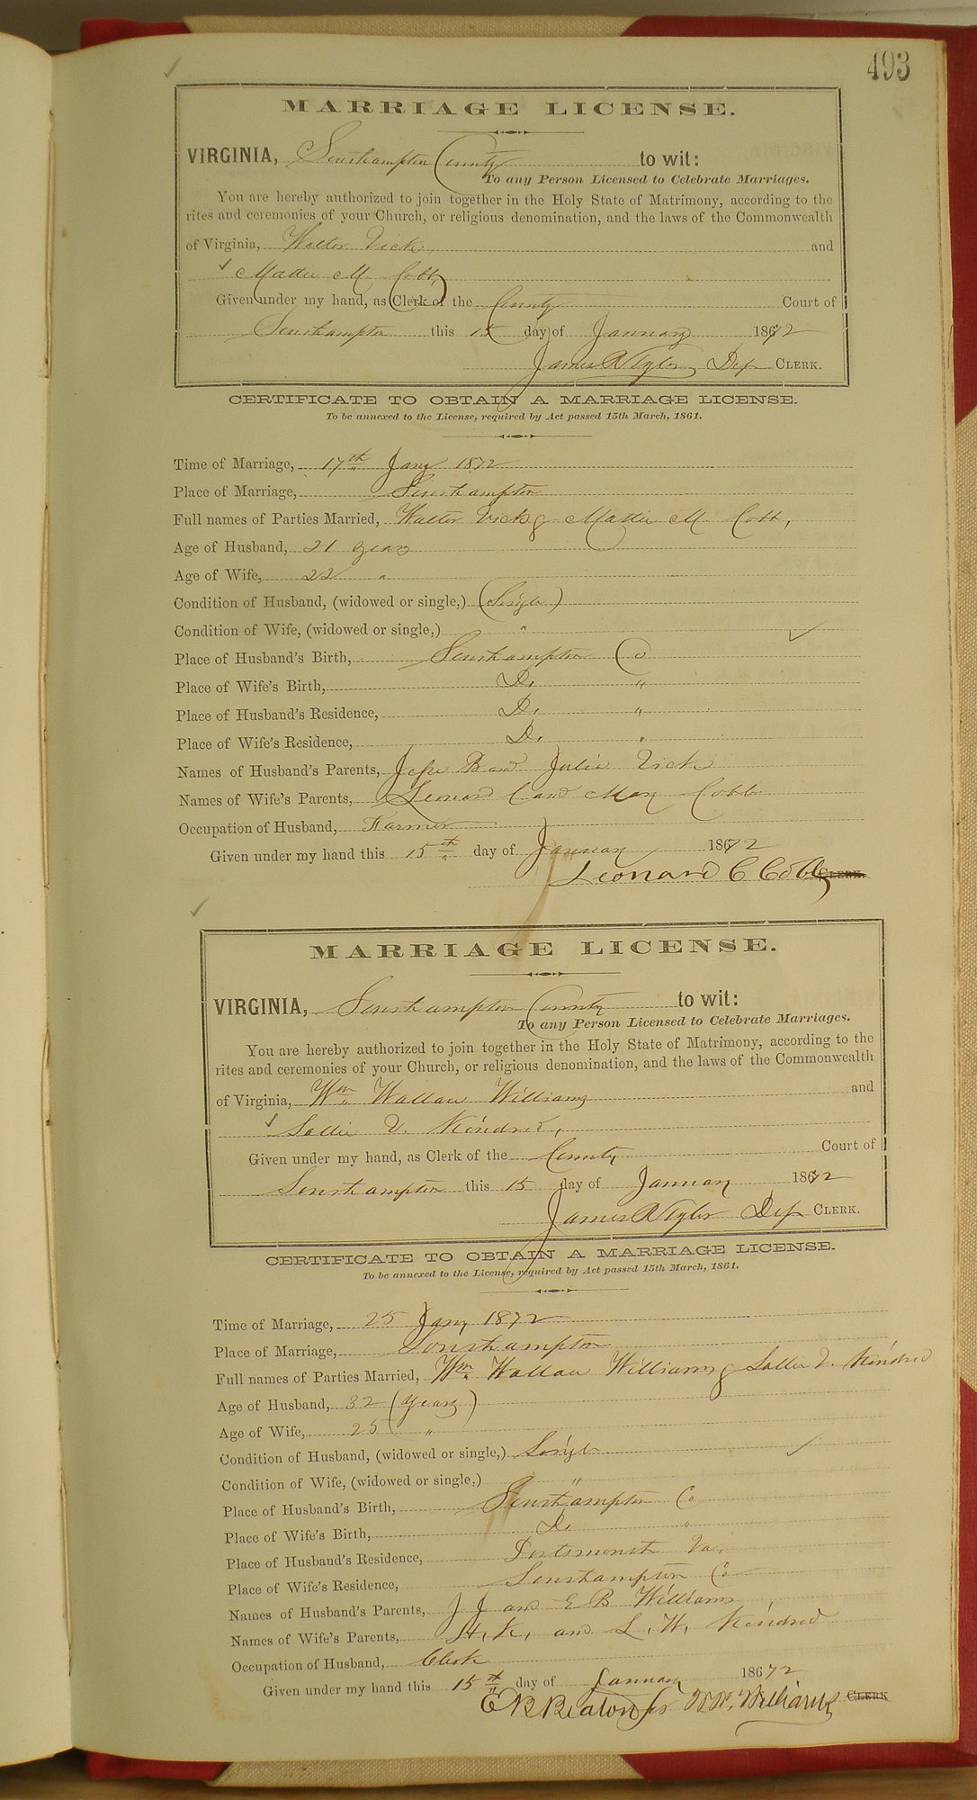 493
MARRIAGE LICENSE.
VIRGINIA, Southampton County to wit:
To any Person Licensed to Celebrate Marriages.
You are hereby authorized to join together in the Holy State of Matrimony, according to the
rites and ceremonies of your Church, or religious denomination, and the laws of the Commonwealth
of Virginia, Walter Vick and
Mattie M. Cobb
Given under my hand, as Clerk of the County Court of
Southampton this 15 day of January 1872
James R Tyler Dep CLERK.
CERTIFICATE TO OBTAIN A MARRIAGE LICENSE.
To be annexed to the License, required by Act passed 15th March, 1861.
Time of Marriage, 17th Jany 1872
Place of Marriage, Southampton
Full names of Parties Married, Walter Vick & Mattie M. Cobb,
Age of Husband, 21 years
Age of Wife, 22 "
Condition of Husband, (widowed or single,) (Single)
Condition of Wife, (widowed or single,) "
Place of Husband's Birth, Southampton Co
Place of Wife's Birth, Do "
Place of Husband's Residence, Do "
Place of Wife's Residence, Do "
Names of Husband's Parents, Jesse B and Julia Vick
Names of Wife's Parents, Leonard C and Mary Cobb
Occupation of Husband, Farmer
Given under my hand this 15th day of January 1872
Leonard C Cobb CLERK.
MARRIAGE LICENSE.
VIRGINIA, Southampton County to wit:
To any Person Licensed to Celebrate Marriages.
You are hereby authorized to join together in the Holy State of Matrimony, according to the
rites and ceremonies of your Church, or religious denomination, and the laws of the Commonwealth
of Virginia, Wm Wallace Williams and
Sallie V. Kindred,
Given under my hand, as Clerk of the County Court of
Southampton this 15 day of January 1872
James R Tyler Dep CLERK.
CERTIFICATE TO OBTAIN A MARRIAGE LICENSE.
To be annexed to the License, required by Act passed 15th March, 1861.
Time of Marriage, 25 Jany 1872
Place of Marriage, Southampton
Full names of Parties Married, Wm Wallace Williams & Sallie V. Kindred
Age of Husband, 32 (years)
Age of Wife, 25 "
Condition of Husband, (widowed or single,) Single
Condition of Wife, (widowed or single,) "
Place of Husband's Birth, Southampton Co
Place of Wife's Birth, Do "
Place of Husband's Residence, Portsmouth Va,
Place of Wife's Residence, Southampton Co
Names of Husband's Parents, J J and E B Williams
Names of Wife's Parents, H. K. and L. W. Kindred
Occupation of Husband, Clerk
Given under my hand this 15th day of January 1872
W W. Williams CLERK